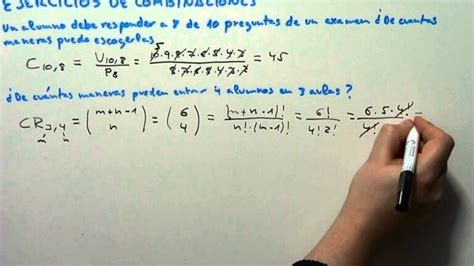 EJERCICIOS DE COMBINACIONES
Un alumno debe responder a 8 de 10 preguntas de un examen ¿De cuántas
maneras puede escogerlas
C10,8 = V10,8 / P8 = 10·9·8·7·6·5·4·3 / 8·7·6·5·4·3·2 = 45
¿De cuántas maneras pueden entrar 4 alumnos en 3 aulas?
CR3,4 = (m+n-1 n) = (6 4) = (m+n-1)! / n!·(m-1)! = 6! / 4!2! = 6·5·4! / 4! =
m n